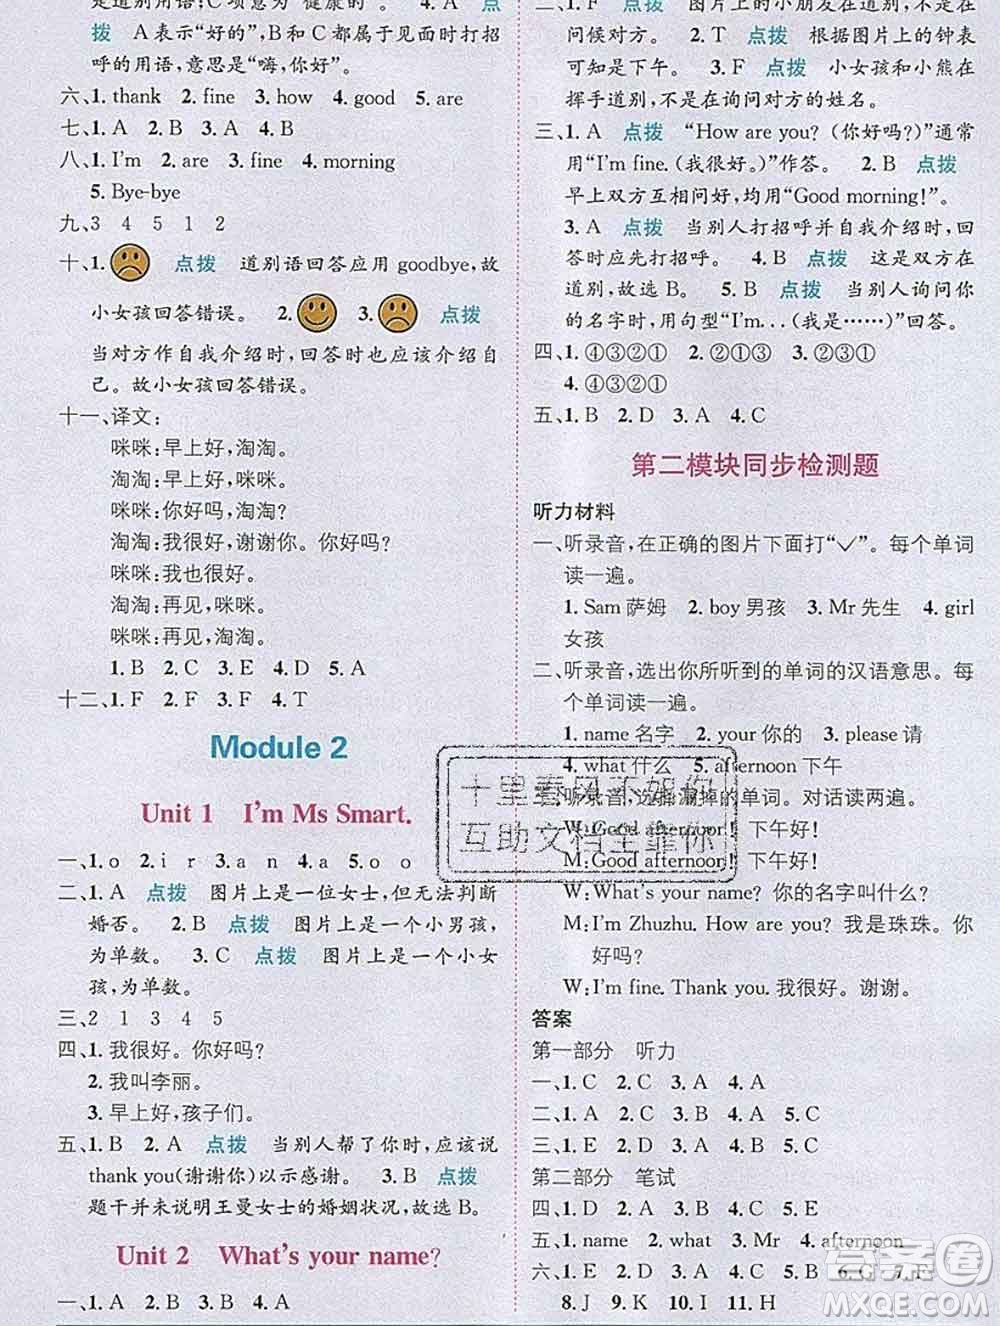 道别用语;C项意为“健康的”。 4. A 点
拨 A表示“好的”,B和C都属于见面时打招
呼的用语,意思是“嗨,你好”。
六、1. thank 2. fine 3. how 4. good 5. are
七、1. A 2. B 3. A 4. B
八、1. I'm 2. are 3. fine 4. morning
5. Bye-bye
九、3 4 5 1 2
十、1. 点拨 道别语回答应用 goodbye,故
小女孩回答错误。 2. 3. 点拨
当对方作自我介绍时,回答时也应该介绍自
己。故小女孩回答错误。
十一、译文:
咪咪:早上好,淘淘。
淘淘:早上好,咪咪。
咪咪:你好吗,淘淘?
淘淘:我很好,谢谢你。你好吗?
咪咪:我也很好。
淘淘:再见,咪咪。
咪咪:再见,淘淘。
1. B 2. C 3. E 4. D 5. A
十二、1. F 2. F 3. F 4. T
Module 2
Unit 1 I'm Ms Smart.
一、1. o 2. i r 3. a n 4. a 5. o o
二、1. A 点拨 图片上是一位女士,但无法判断
婚否。 2. B 点拨 图片上是一个小男孩,
为单数。 3. C 点拨 图片上是一个小女
孩,为单数。
三、2 1 3 4 5
四、1. 我很好。你好吗?
2. 我叫李丽。
3. 早上好,孩子们。
五、1. B 2. A 点拨 当别人帮了你时,应该说
thank you(谢谢你)以示感谢。 3. B 点拨
题干并未说明王曼女士的婚姻状况,故选B。
Unit 2 What's your name?
一、1. A 2. B 3. B 4. A 5. A
二、1. F 点拨 图片上的小朋友在道别,不是在
问候对方。 2. T 点拨 根据图片上的钟表
可知是下午。 3. F 点拨 小女孩和小熊在
挥手道别,不是在询问对方的姓名。
三、1. A 点拨 “How are you?(你好吗?)”通常
用“I'm fine.(我很好。)”作答。 2. B 点拨
早上双方互相问好,均用“Good morning!”。
3. A 点拨 当别人打招呼并自我介绍时,回
答时应先打招呼。 4. B 点拨 这是双方在
道别,故选B。 5. B 点拨 当别人询问你
的名字时,用句型“I'm...(我是……)”回答。
四、1. ④③②① 2. ②①④③ 3. ②③①
4. ④③②①
五、1. B 2. D 3. A 4. C
第二模块同步检测题
听力材料
一、听录音,在正确的图片下面打“✓”。每个单词
读一遍。
1. Sam 萨姆 2. boy 男孩 3. Mr 先生 4. girl
女孩
二、听录音,选出你所听到的单词的汉语意思。每
个单词读一遍。
1. name 名字 2. your 你的 3. please 请
4. what 什么 5. afternoon 下午
听录音,选择漏掉的单词。对话读两遍。
W: Good afternoon! 下午好!
M: Good afternoon! 下午好!
W: What's your name? 你的名字叫什么?
M: I'm Zhuzhu. How are you? 我是珠珠。你
好吗?
W: I'm fine. Thank you. 我很好。谢谢。
答案
第一部分 听力
一、1. C 2. C 3. A 4. A
二、1. C 2. A 3. A 4. A 5. C
三、1. E 2. D 3. A 4. B 5. C
第二部分 笔试
四、1. D 2. A 3. B 4. C 5. E
五、1. name 2. what 3. your 4. afternoon
六、1. E 2. D 3. A 4. C 5. B 6. G 7. F
8. J 9. K 10. I 11. H
十里春风不如你
互助文档全靠你
答案圈
MXQE.COM